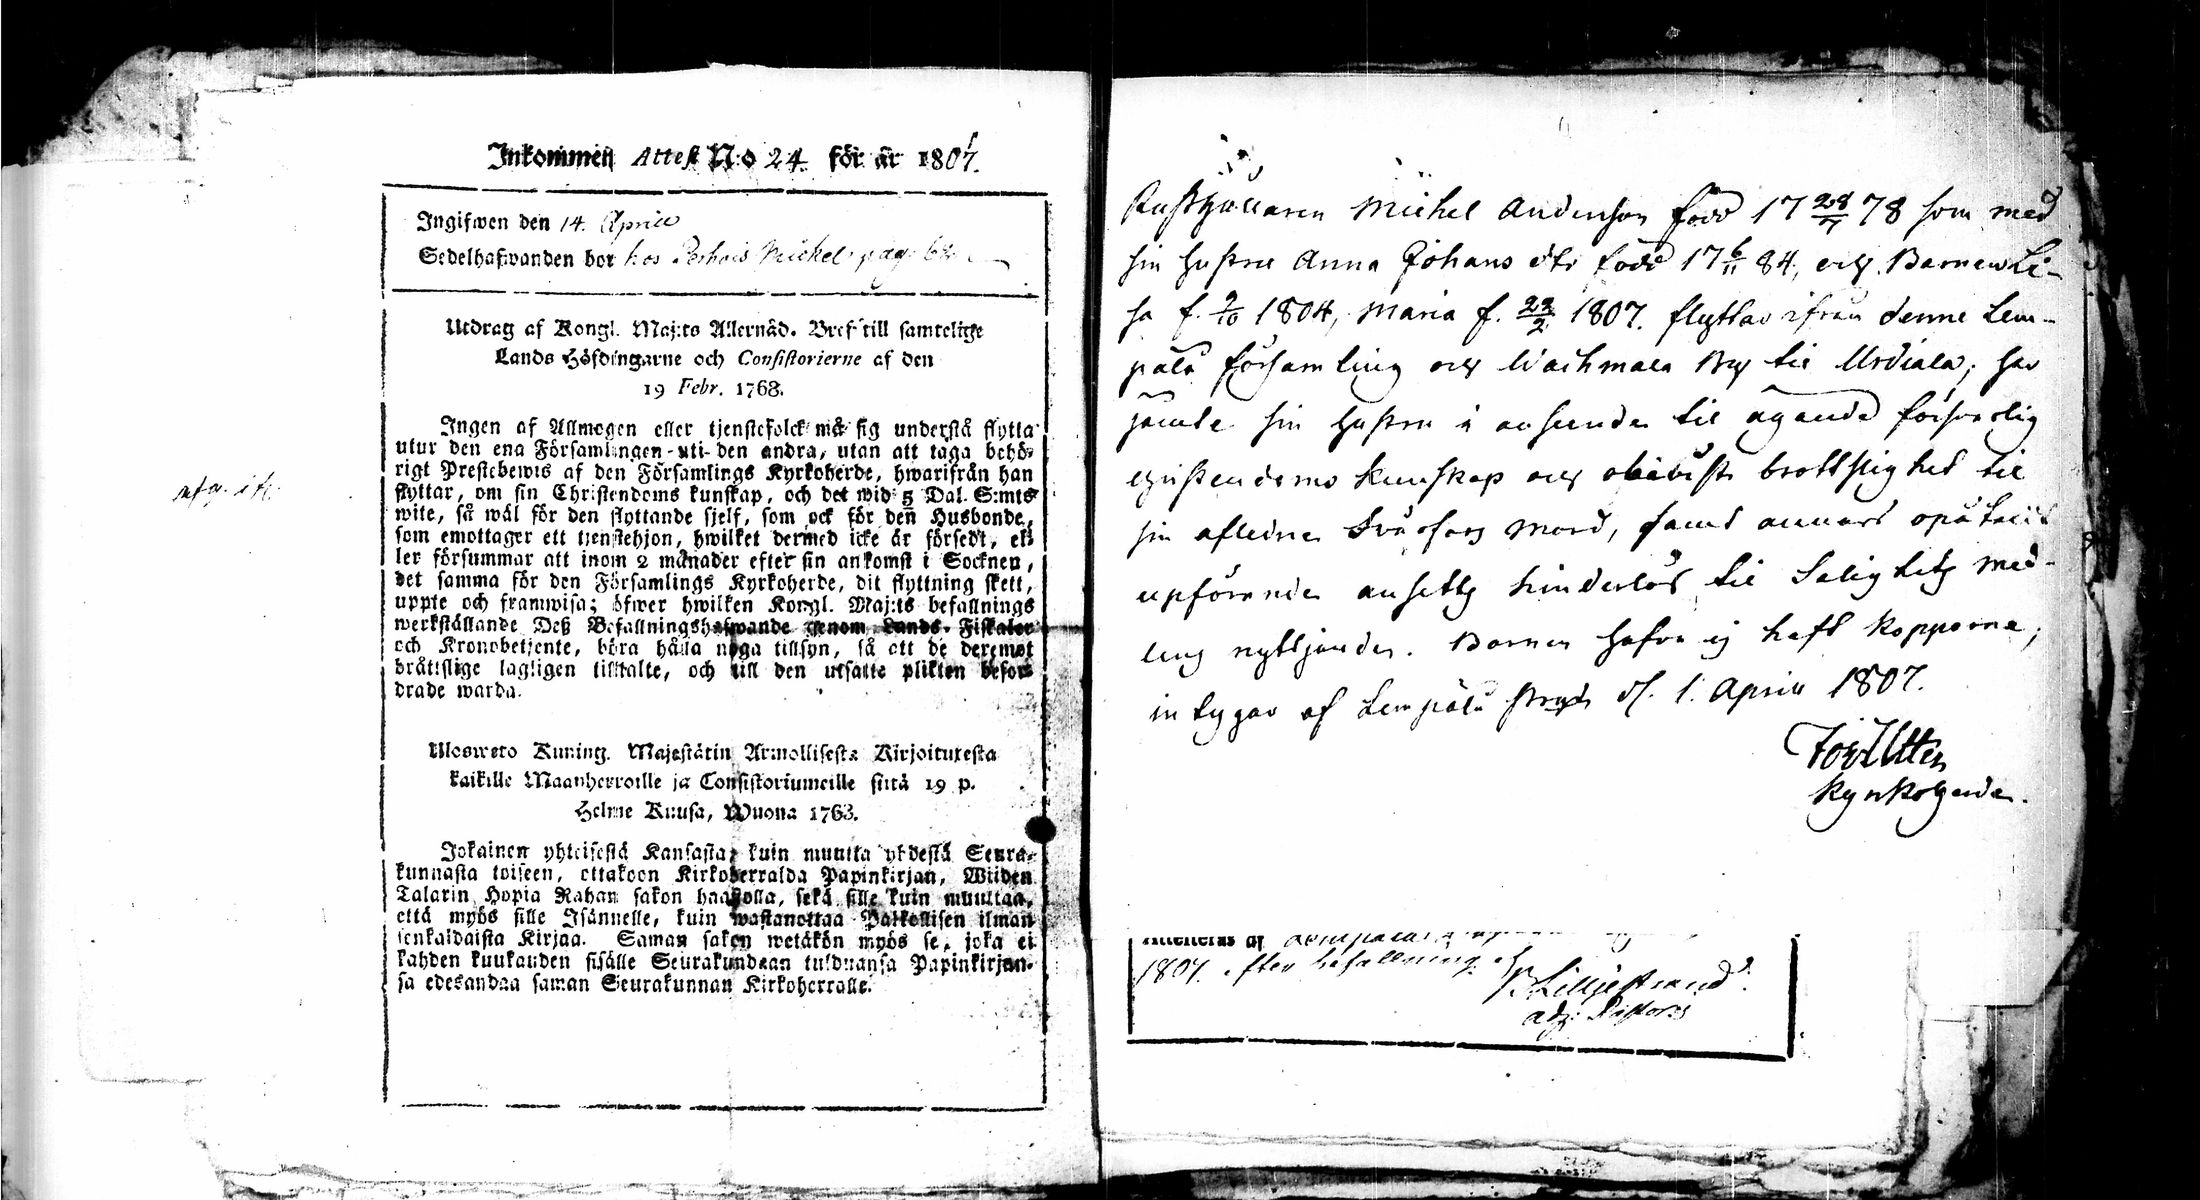 Inkommen Attest No 24. för år 1807.
Ingifwen den 14. Aprill
Sedelhafwanden bor hos Michel pag.
Utdrag af Kongl. Maj:ts Allernåd. Bref till samtelige
Lands Höfdingarne och Consistorierne af den
19 Febr. 1768.
Ingen af Allmogen eller tjenstefolck må sig understå flytta
utur den ena Församlingen uti den andra, utan att taga behö-
rigt Prestebewis af den Församlings Kyrkoherde, hwarifrån han
flyttar, om sin Christendoms kunskap, och det wid 5 Dal. S:mts
wite, så wäl för den flyttande sjelf, som ock för den Husbonde,
som emottager ett tjenstehjon, hwilket dermed icke är försedt, el-
ler försummar att inom 2 månader efter sin ankomst i Socknen,
det samma för den Församlings Kyrkoherde, dit flyttning skett,
uppte och framwisa; öfwer hwilken Kongl. Maj:ts befallnings
werkställande Deß Befallningshafwande genom Lands-Fiskaler
och Kronobetjente, böra hålla noga tillsyn, så att de deremot
bråttslige lagligen tilltalte, och till den utsatte plikten befor-
drade warda.
Ulosweto Kuning. Majestätin Armollisesta Kirjoituxesta
kaikille Maanherroille ja Consistoriumeille siitä 19 p.
Helme Kuusa, Wuona 1763.
Jokainen yhteisestä Kansasta, kuin muutta yhdestä Seura-
kunnasta toiseen, ottakoon Kirkoherralda Papinkirjan, Wiiden
Talarin Hopia Rahan sakon haastolla, sekä sille kuin muuttaa,
että myös sille Isännelle, kuin wastanottaa Palkollisen ilman
senkaldaista Kirjaa. Saman sakon wetäkön myös se, joka ei
kahden kuukauden sisälle Seurakundaan tulduansa Papinkirjan-
sa edesandaa saman Seurakunnan Kirkoherralle.
Rusthållaren Michel Andersson född 17 28/7 78 som med
sin hustru Anna Johans dtr född 17 6/11 84, och Barnen Li-
sa f. 9/10 1804, Maria f. 22/2 1807. flyttar ifrån denne Lem-
pälä församling och Wachmala By til Urdiala; har
jämte sin hustru i anseende til ägande försvarlig
christendoms kunskap och obevist brottslighet til
sin afledne Svärfars mord, samt annars opåtalt
upförande ansetts hinderlös til Salighets med-
lens nyttjande. Barnen hafva ej haft kopporna;
intygar af Lempälä d. 1. April 1807.
Kyrkoherde.
Attesteras af
1807. efter befallning af
Lilljestrand
adj: Pastoris